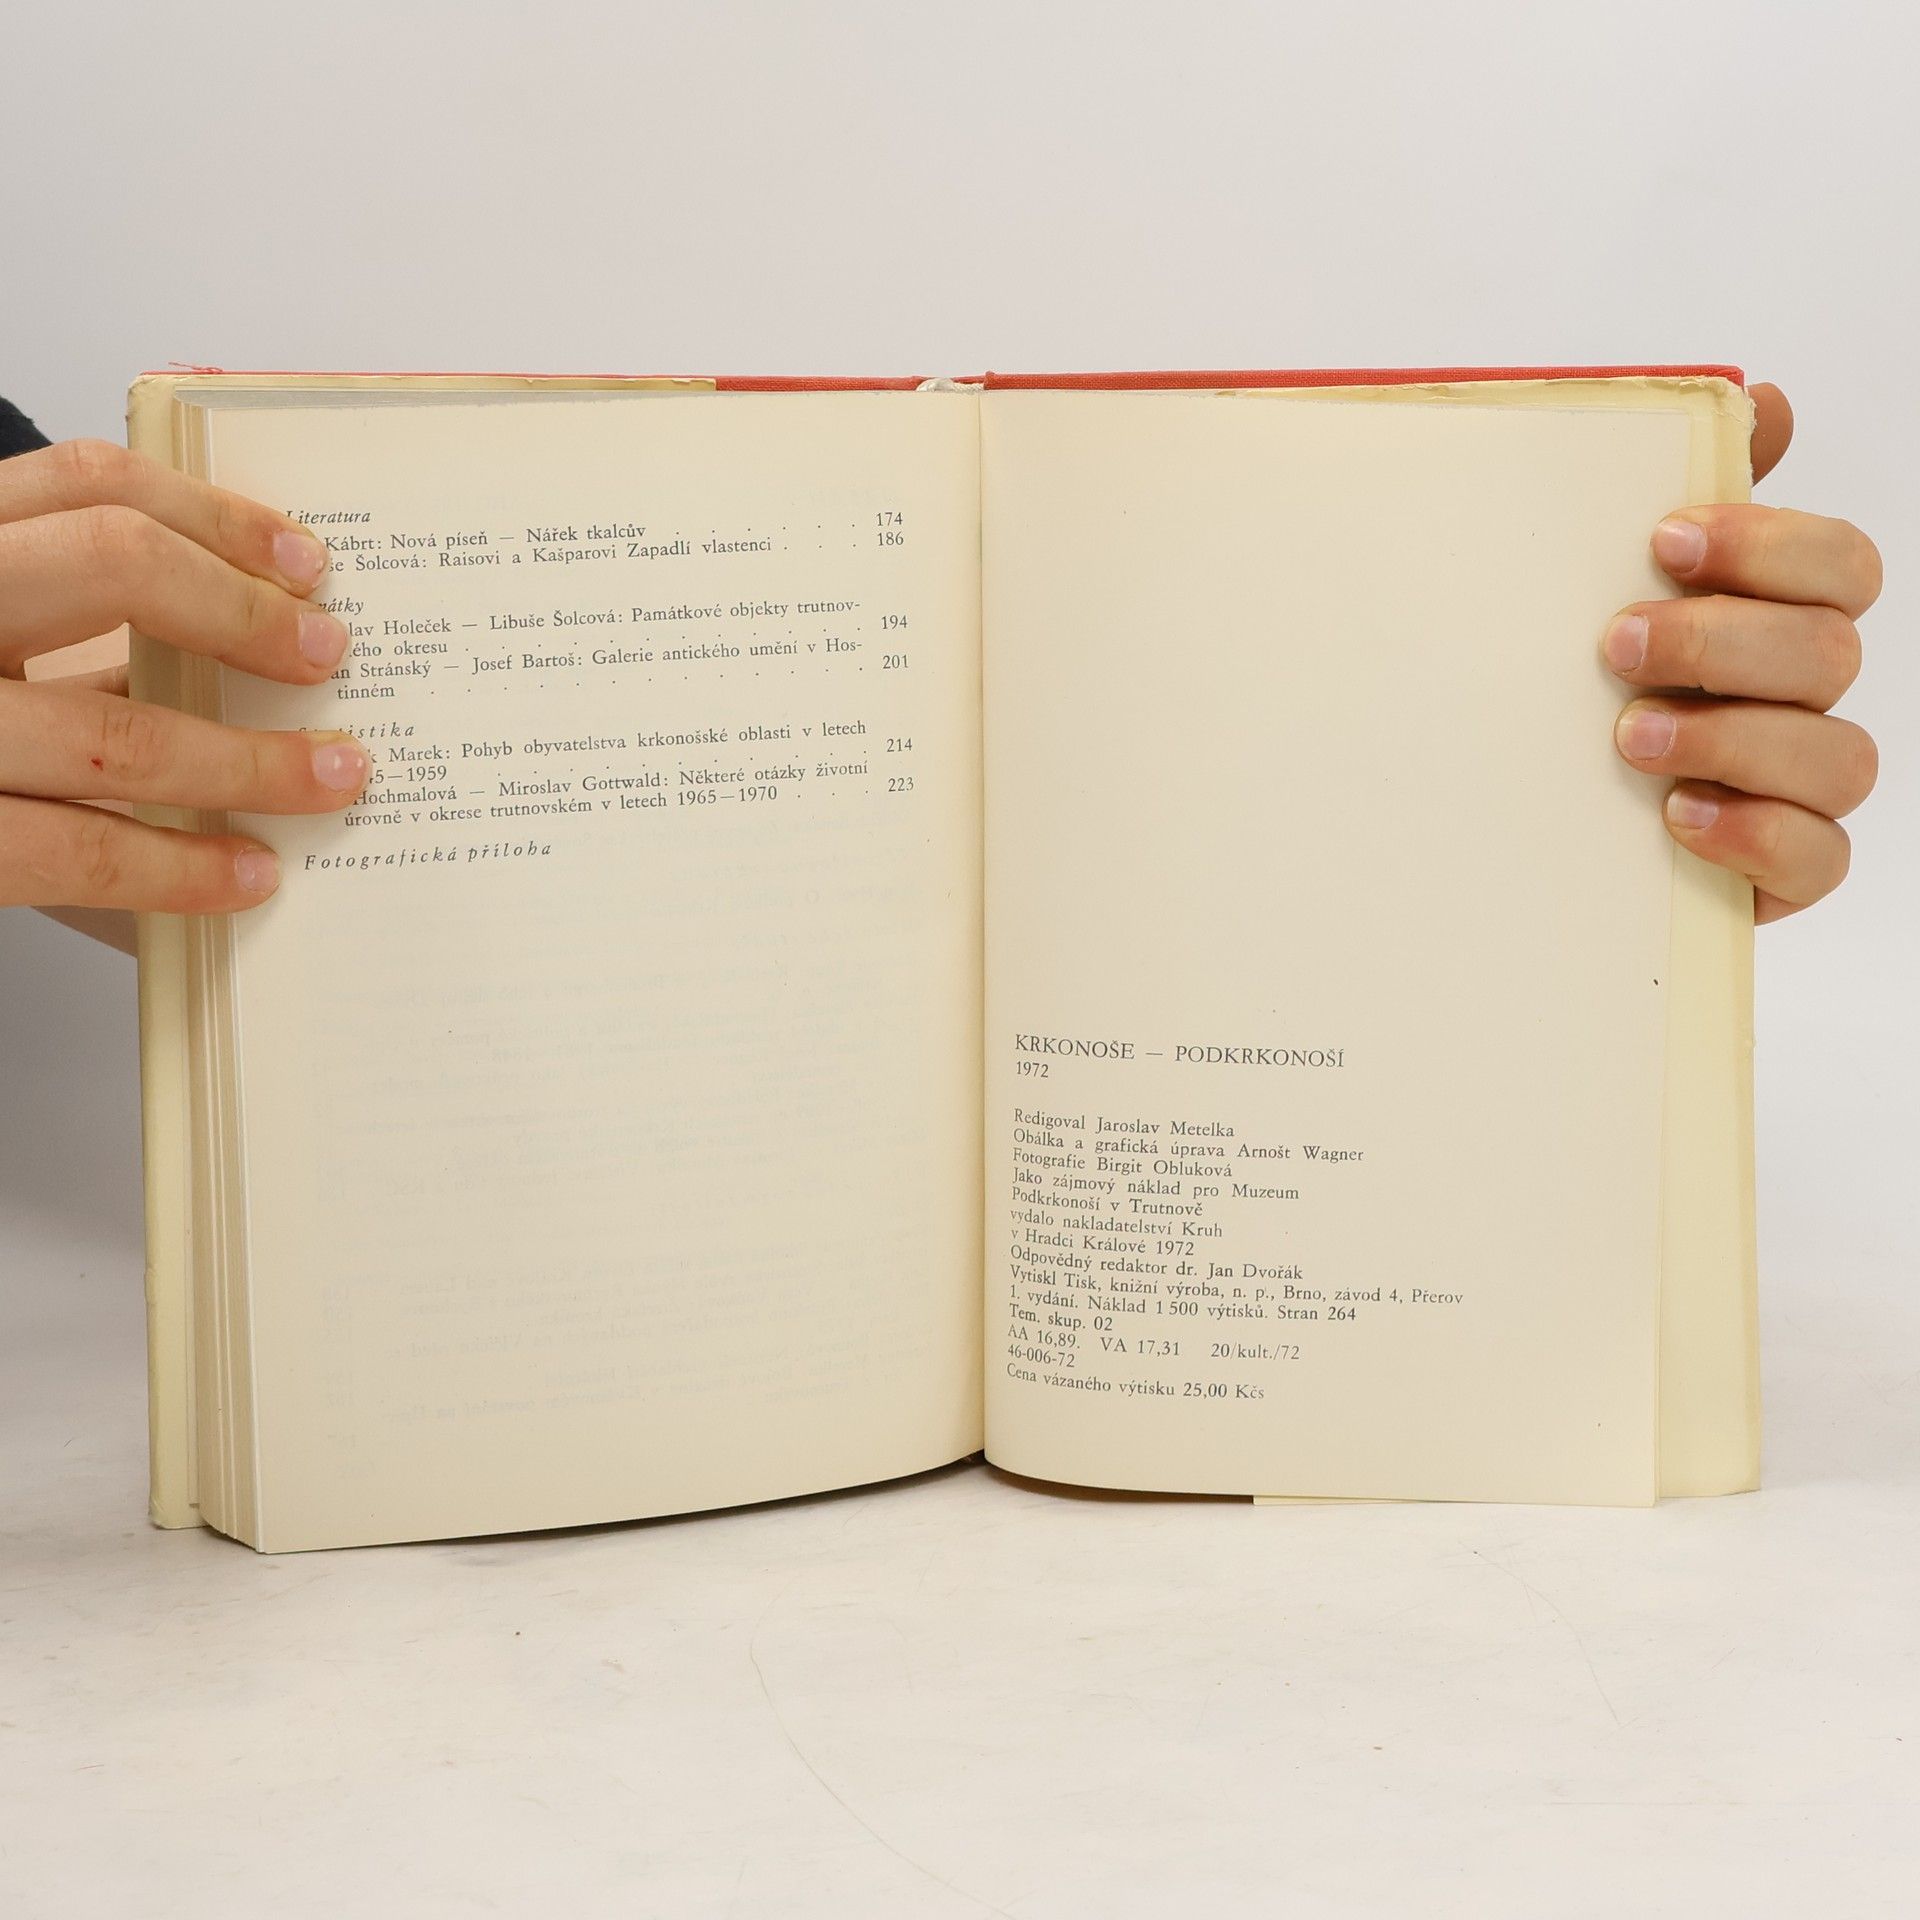 Literatura
Kábrt: Nová píseň — Nářek tkalcův . . . . . . 174
Šolcová: Raisovi a Kašparovi Zapadlí vlastenci . . . 186
Holeček — Libuše Šolcová: Památkové objekty trutnov-
okresu . . . . . . . . . . . . 194
Stránský — Josef Bartoš: Galerie antického umění v Hos-
tinném . . . . . . . . . . . . 201
Marek: Pohyb obyvatelstva krkonošské oblasti v letech
—1959 . . . . . . . . . . . 214
Hochmalová — Miroslav Gottwald: Některé otázky životní
úrovně v okrese trutnovském v letech 1965—1970 . . . 223
Fotografická příloha
KRKONOŠE — PODKRKONOŠÍ
1972
Redigoval Jaroslav Metelka
Obálka a grafická úprava Arnošt Wagner
Fotografie Birgit Obluková
Jako zájmový náklad pro Muzeum
Podkrkonoší v Trutnově
vydalo nakladatelství Kruh
v Hradci Králové 1972
Odpovědný redaktor dr. Jan Dvořák
Vytiskl Tisk, knižní výroba, n. p., Brno, závod 4, Přerov
1. vydání. Náklad 1 500 výtisků. Stran 264
Tem. skup. 02
AA 16,89. VA 17,31 20/kult./72
46-006-72
Cena vázaného výtisku 25,00 Kčs